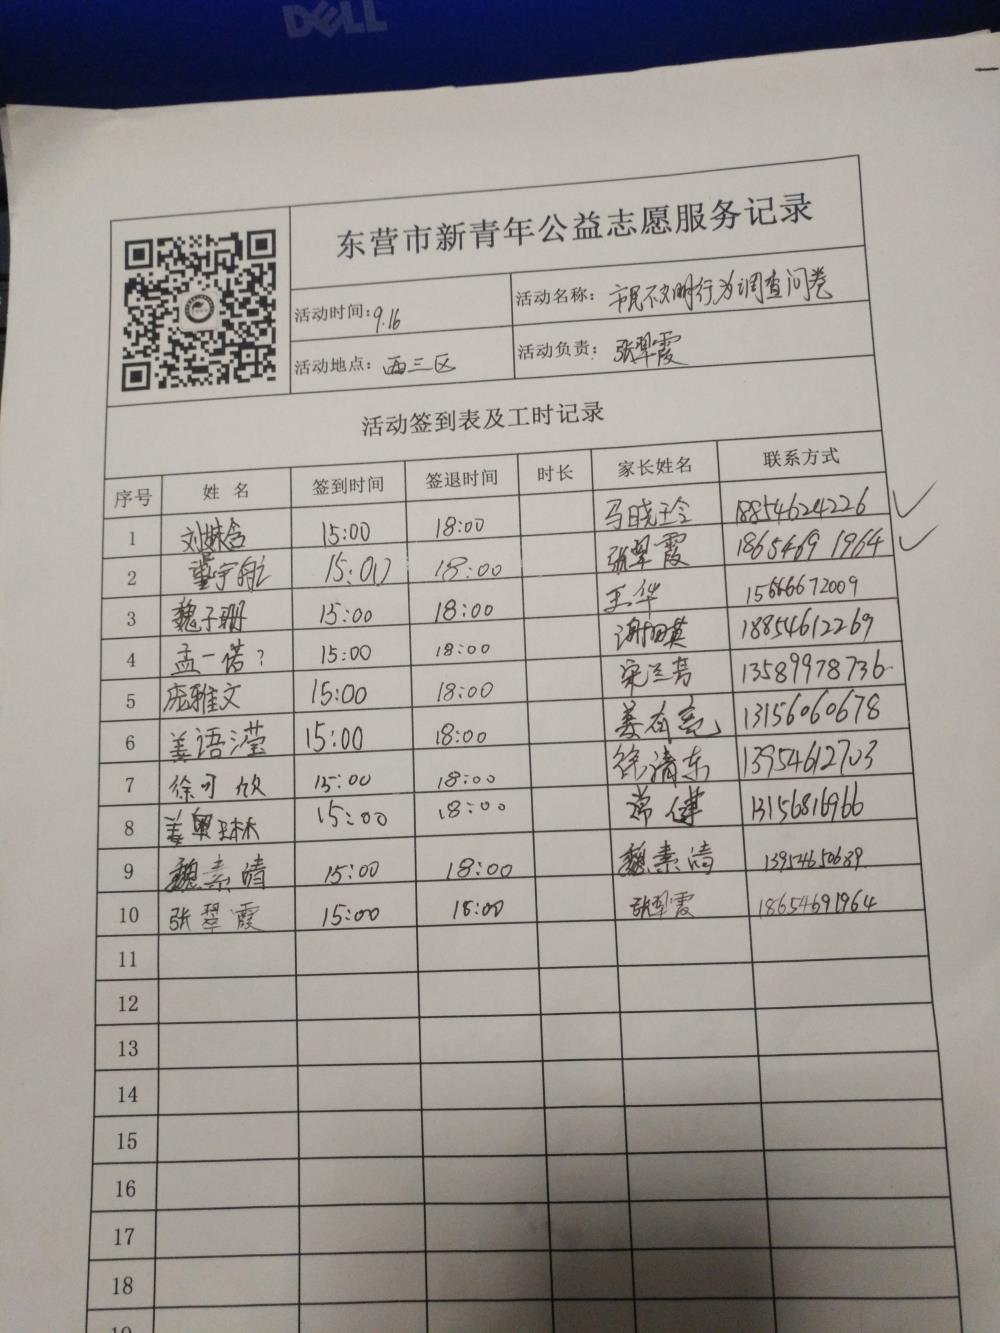 DELL
东营市新青年公益志愿服务记录
活动时间: 9.16 活动名称: 市民不文明行为调查问卷
活动地点: 西三区 活动负责: 张翠霞
活动签到表及工时记录
序号 姓 名 签到时间 签退时间 时长 家长姓名 联系方式
1 刘姝含 15:00 18:00 马晓玲 18854624226
2 15:00 18:00 张翠霞 18654691964
3 魏子珊 15:00 18:00 王华 15666672009
4 孟一诺? 15:00 18:00 谢田英 18854612269
5 庞雅文 15:00 18:00 宋兰芳 13589978736
6 姜语滢 15:00 18:00 姜有亮 13156060678
7 徐可欣 15:00 18:00 徐清东 13954612703
8 姜奥琳 15:00 18:00 常健 13156816966
9 魏素清 15:00 18:00 魏素清 13954650689
10 张翠霞 15:00 18:00 张翠霞 18654691964
11
12
13
14
15
16
17
18
19